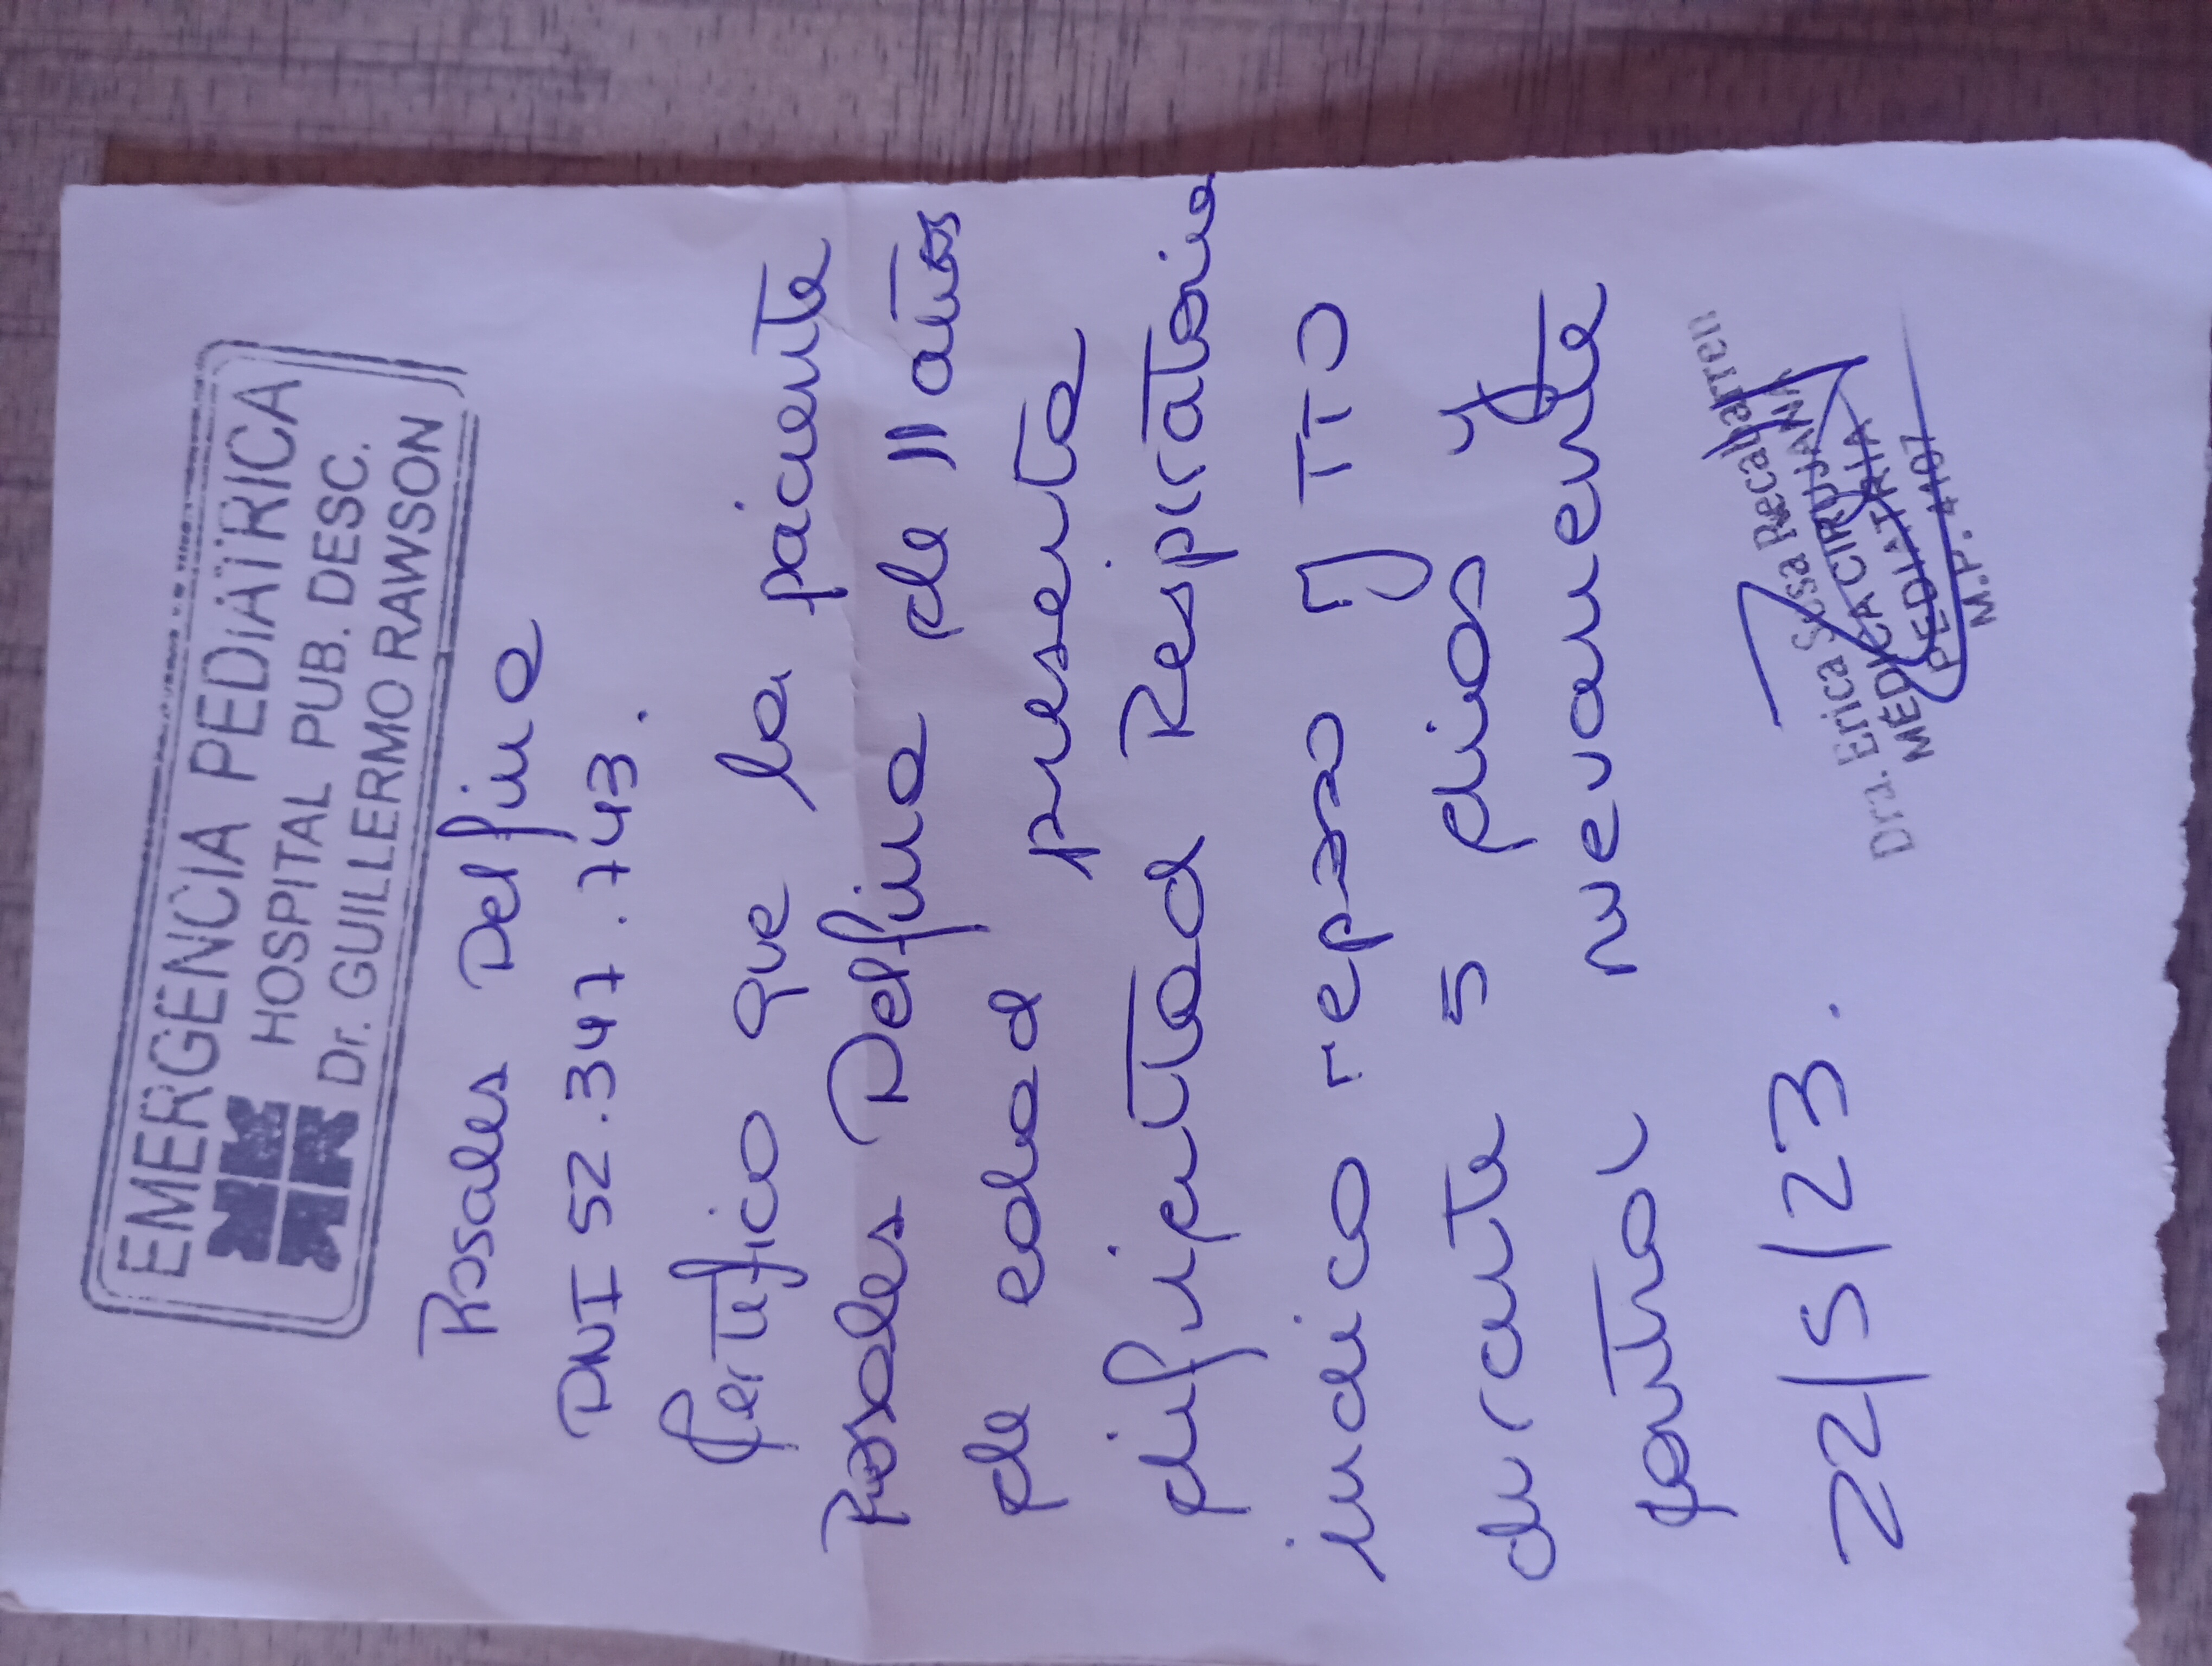 EMERGENCIA PEDIÁTRICA
HOSPITAL PUB. DESC.
Dr. GUILLERMO RAWSON
Rosales Delfina
DNI 52.347.743.
Certifico que la paciente
Rosales Delfina de 11 años
de edad presenta
dificultad Respiratoria
indico reposo y TTO
durante 5 dias y
control nevamente
22/5/23.
Dra. Erica Sosa Recabarren
MÉDICA CIRUJANA
PEDIATRIA
M.P.: 4107